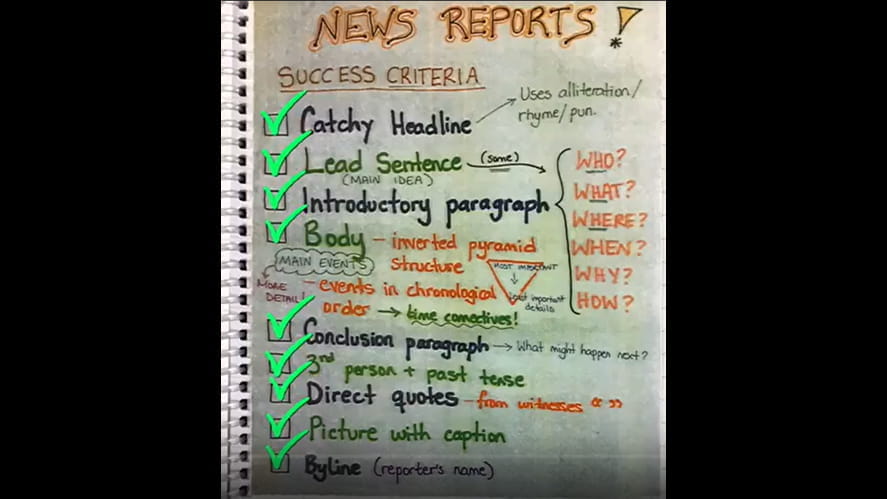 NEWS REPORTS!
SUCCESS CRITERIA
Uses alliteration/
rhyme/pun.
Catchy Headline
Lead Sentence (some)
(MAIN IDEA)
Introductory paragraph
WHO?
WHAT?
WHERE?
WHEN?
WHY?
HOW?
Body - inverted pyramid
structure
MAIN EVENTS
MORE
DETAIL!
MOST IMPORTANT
least important
details
- events in chronological
order → time connectives!
Conclusion paragraph → What might happen next?
3rd person + past tense
Direct quotes - from witnesses “ ”
Picture with caption
Byline (reporter's name)